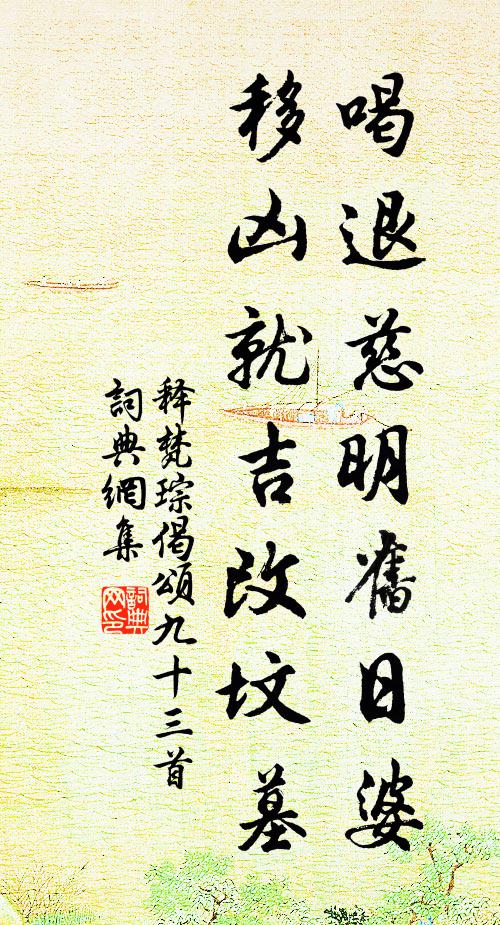 喝退慈明舊日婆
移凶就吉改坟墓
释梵琮偈頌九十三首
詞典網集
詞典网印